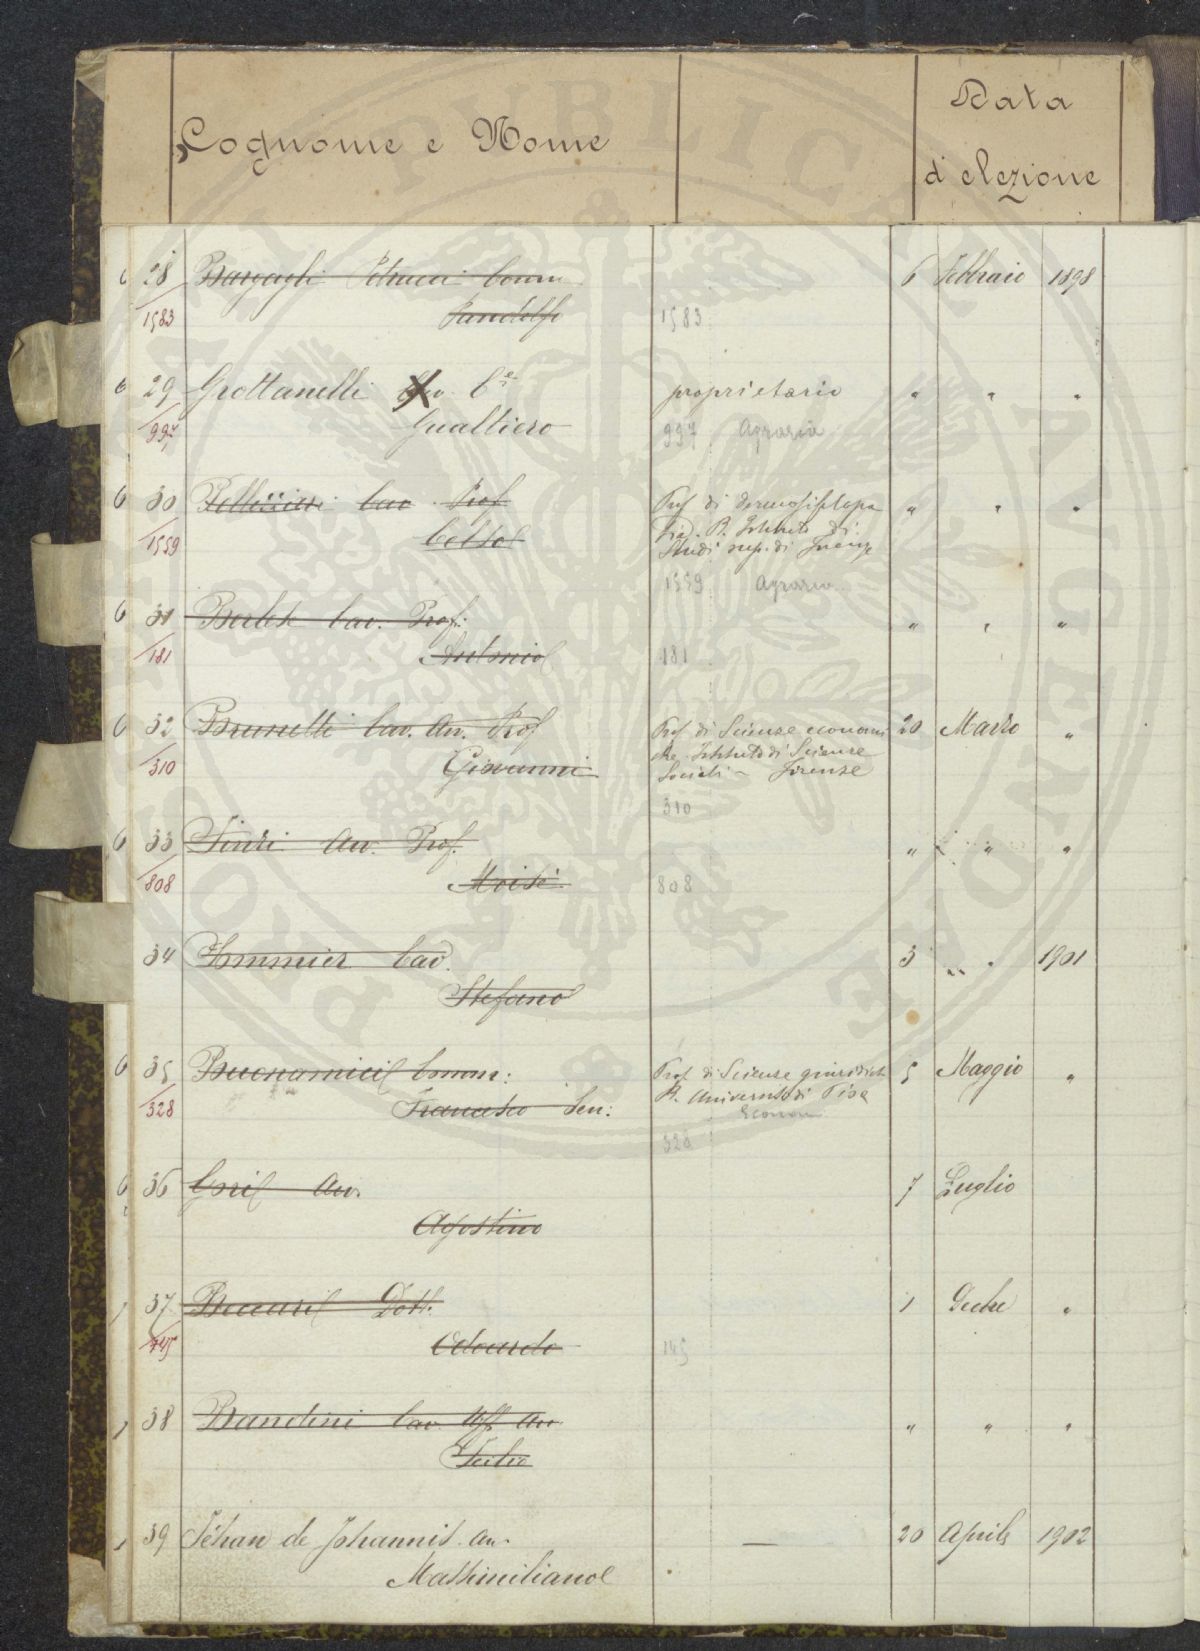 Cognome e Nome
Data
d'elezione
6 28 Bargagli Petrucci Comm 6 Febbraio 1898
1583 Pandolfo 1583
6 29 Grottanelli Cav. C.e proprietario " " "
997 Gualtiero 997 Agraria
6 30 Pellizzari Cav Prof Prof di dermosifilopa " " "
tia. R. Istituto di
1559 Celso Studi sup. di Firenze
1559 Agraria
6 31 Berlese Cav. Prof. " " "
181 Antonio 181
6 32 Brunetti Cav. Av. Prof Prof di Scienze economi 20 Marzo "
che Istituto di Scienze
310 Giovanni Sociali - Firenze
310
6 33 Finzi Av. Prof. " " "
808 Moisè 808
34 Cav. 3 " " 1901
Stefano
6 35 Buonamici Comm: Prof di Scienze giuridich 5 Maggio "
328 Francesco Sen: R. Università di Pisa
Econom
328
6 36 Av. 7 Luglio
Agostino
37 Beccari Dott. 1 "
145 Odoardo 145
38 Bandini Cav. Uff. Av " " "
39 Jéhan de Johannis Av. — 20 Aprile 1902
Massimiliano
P VBLICAE
AVGENDAE
PROSPERITATI